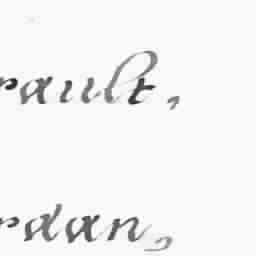 rault,
rdan,